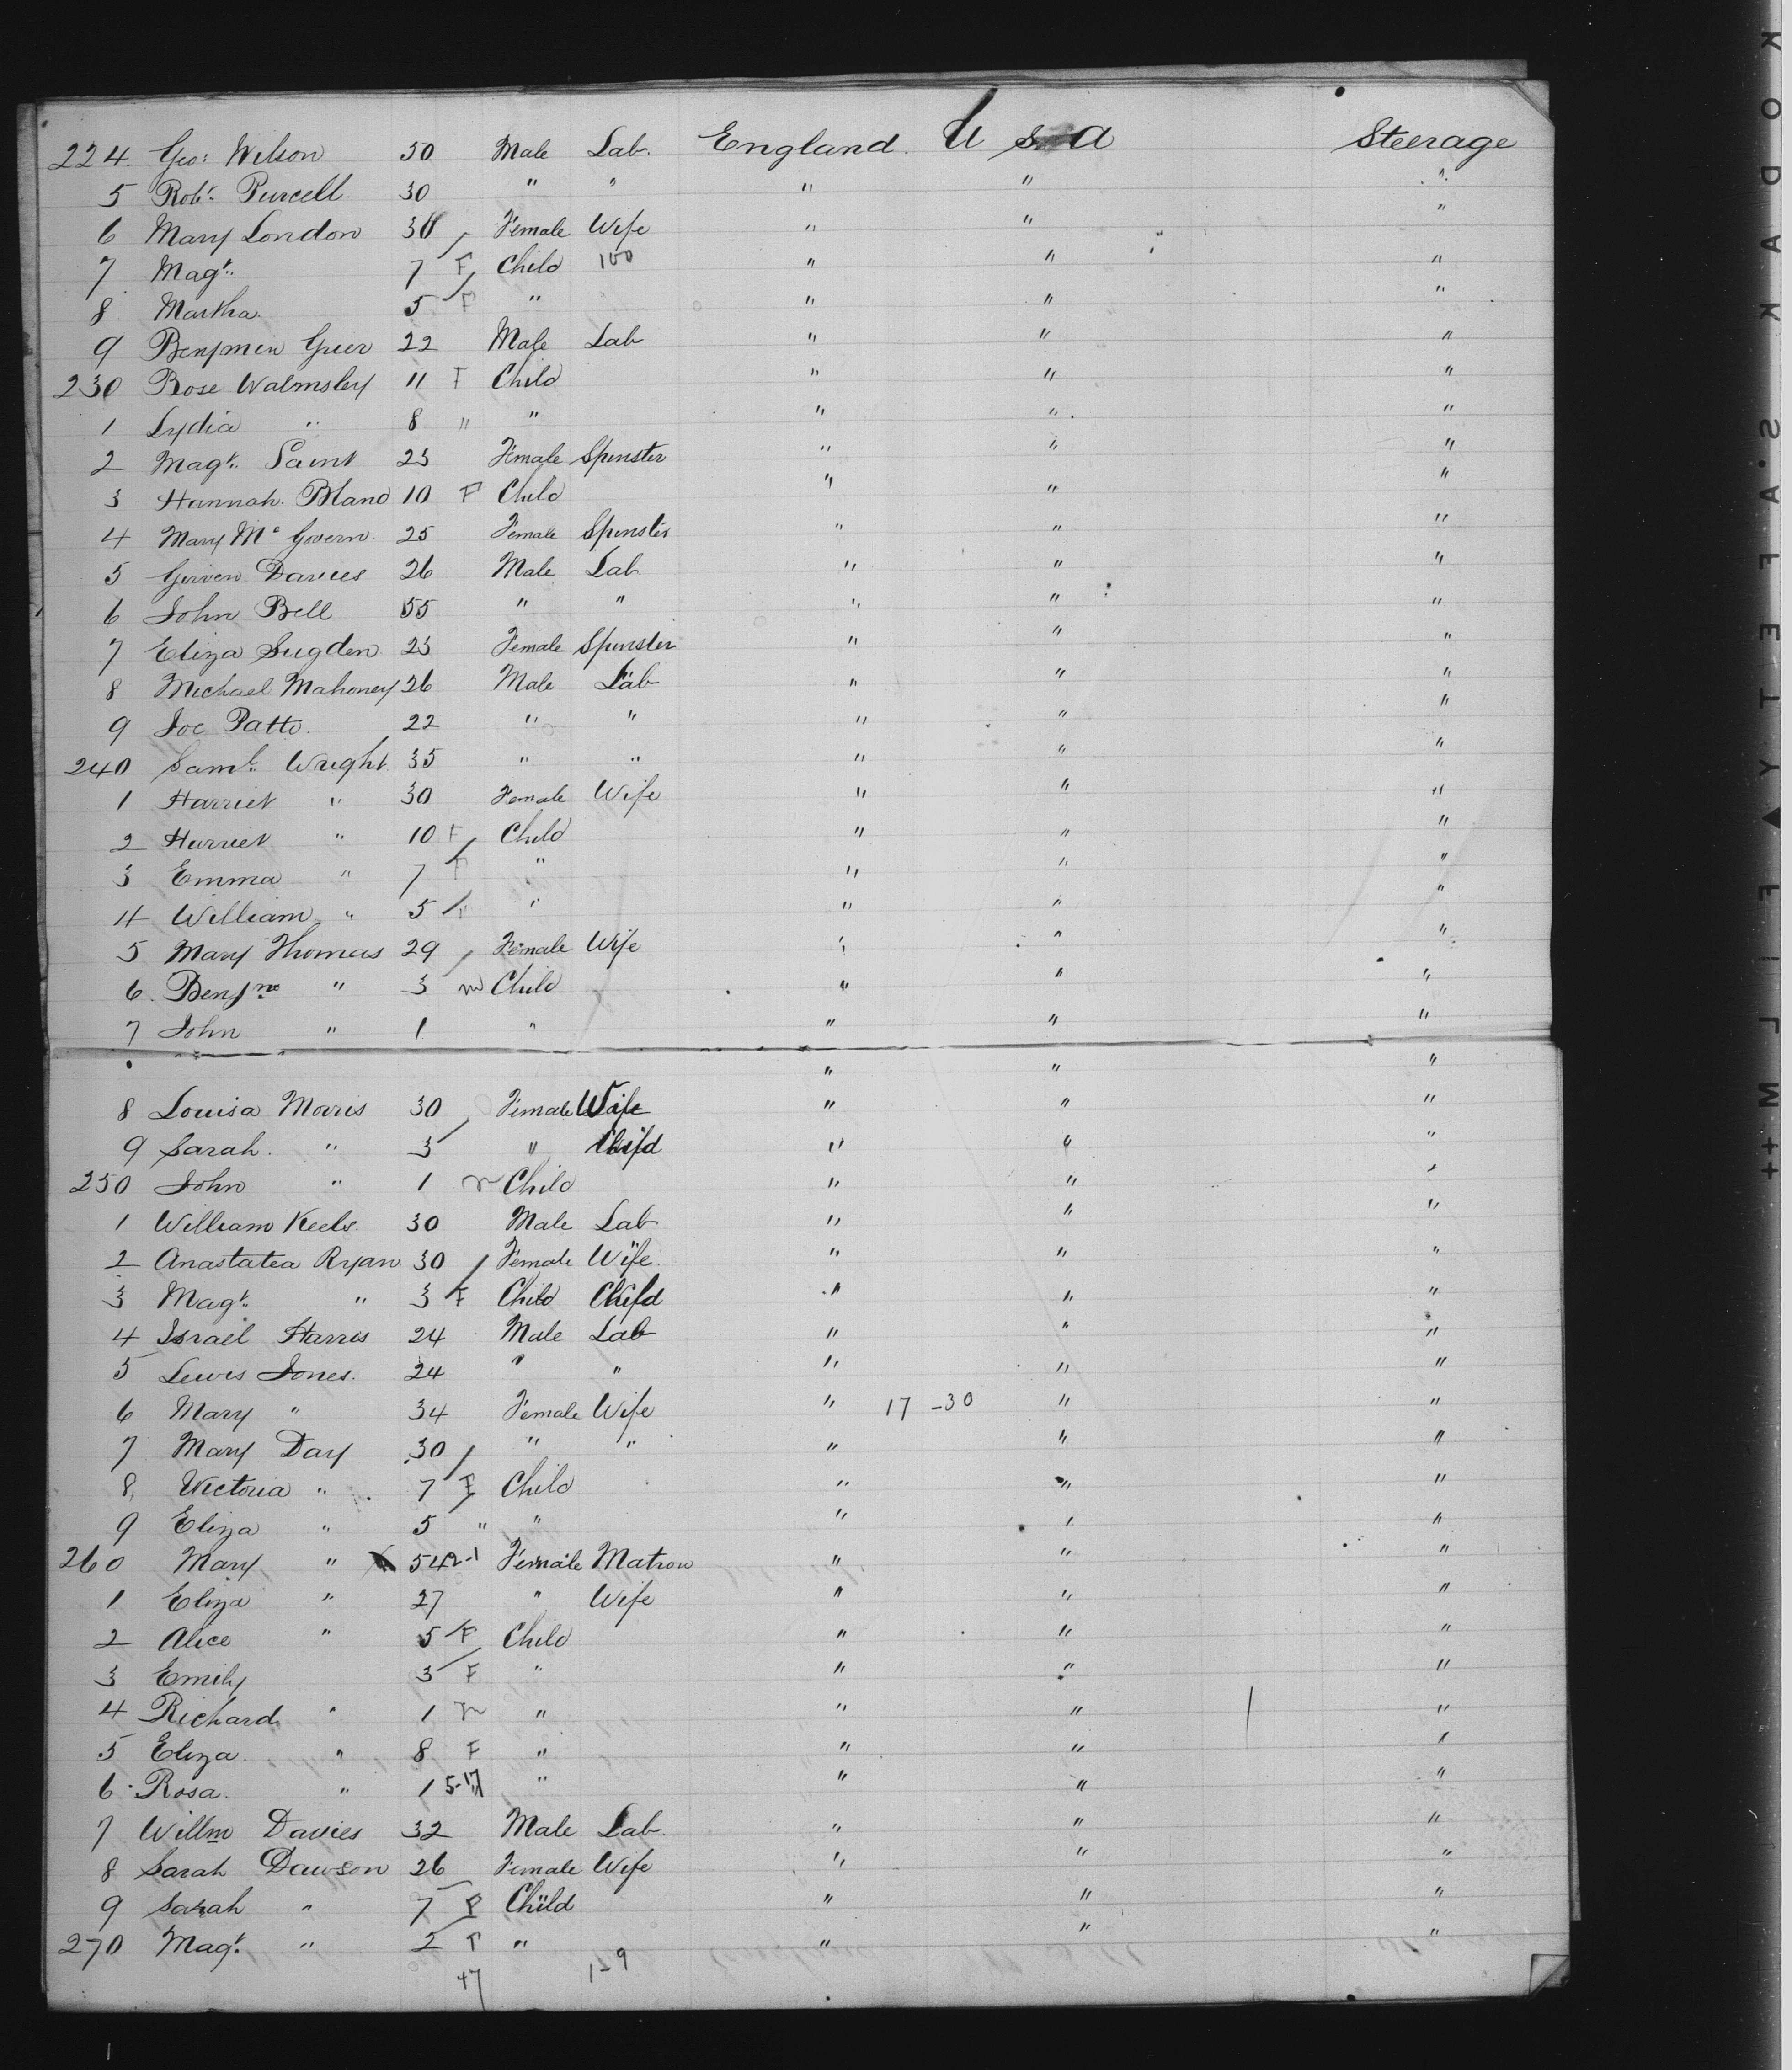 224. Geo: Wilson 50 Male Lab. England. U S A Steerage
5 Robt. Purcell 30 " " " " "
6 Mary London 30 Female Wife " " "
7 Magt. 7 F Child 100 " " "
8 Martha. 5 F " " " "
9 Benjmin Greer 22 Male Lab " " "
230 Rose Walmsley 11 F Child " " "
1 Lydia " 8 " " " " "
2 Magt. Saint 23 Female Spinster " " "
3 Hannah Bland 10 F Child " " "
4 Mary Mc Govern 25 Female Spinster " " "
5 Davies 26 Male Lab " " "
6 John Bell 55 " " " " "
7 Eliza Sugden 23 Female Spinster " " "
8 Michael Mahoney 26 Male Lab " " "
9 Joe Patto. 22 " " " " "
240 Saml. Wright 35 " " " " "
1 Harriet " 30 Female Wife " " "
2 Harriet " 10 F Child " " "
3 Emma " 7 F " " " "
4 William " 5 " " " "
5 Mary Thomas 29 Female Wife " " "
6 Benjn " 3 m Child " " "
7 John " 1 " " " "
" " "
8 Louisa Morris 30 Female Wife " " "
9 Sarah. " 3 " Child " " "
250 John " 1 m Child " " "
1 William Keels. 30 Male Lab " " "
2 Anastatea Ryan 30 Female Wife " " "
3 Magt. " 3 F Child Child " " "
4 Israel Harris 24 Male Lab " " "
5 Lewis Jones. 24 " " " " "
6 Mary " 34 Female Wife " 17 -30 " "
7 Mary Day 30 " " " " "
8 Victoria " 7 F Child " " "
9 Eliza " 5 " " " " "
260 Mary " 54 2-1 Female Matron " " "
1 Eliza " 27 " Wife " " "
2 Alice " 5 F Child " " "
3 Emily 3 F " " " "
4 Richard " 1 m " " " "
5 Eliza. " 8 F " " " "
6 Rosa. " 1 5-17 " " " "
7 Willm Davies 32 Male Lab. " " "
8 Sarah Dawson 26 Female Wife " " "
9 Sarah " 7 F Child " " "
270 Magt. " 2 F " " " "
47 1-9
KODAK S.A.FETY ▲ FILM ++